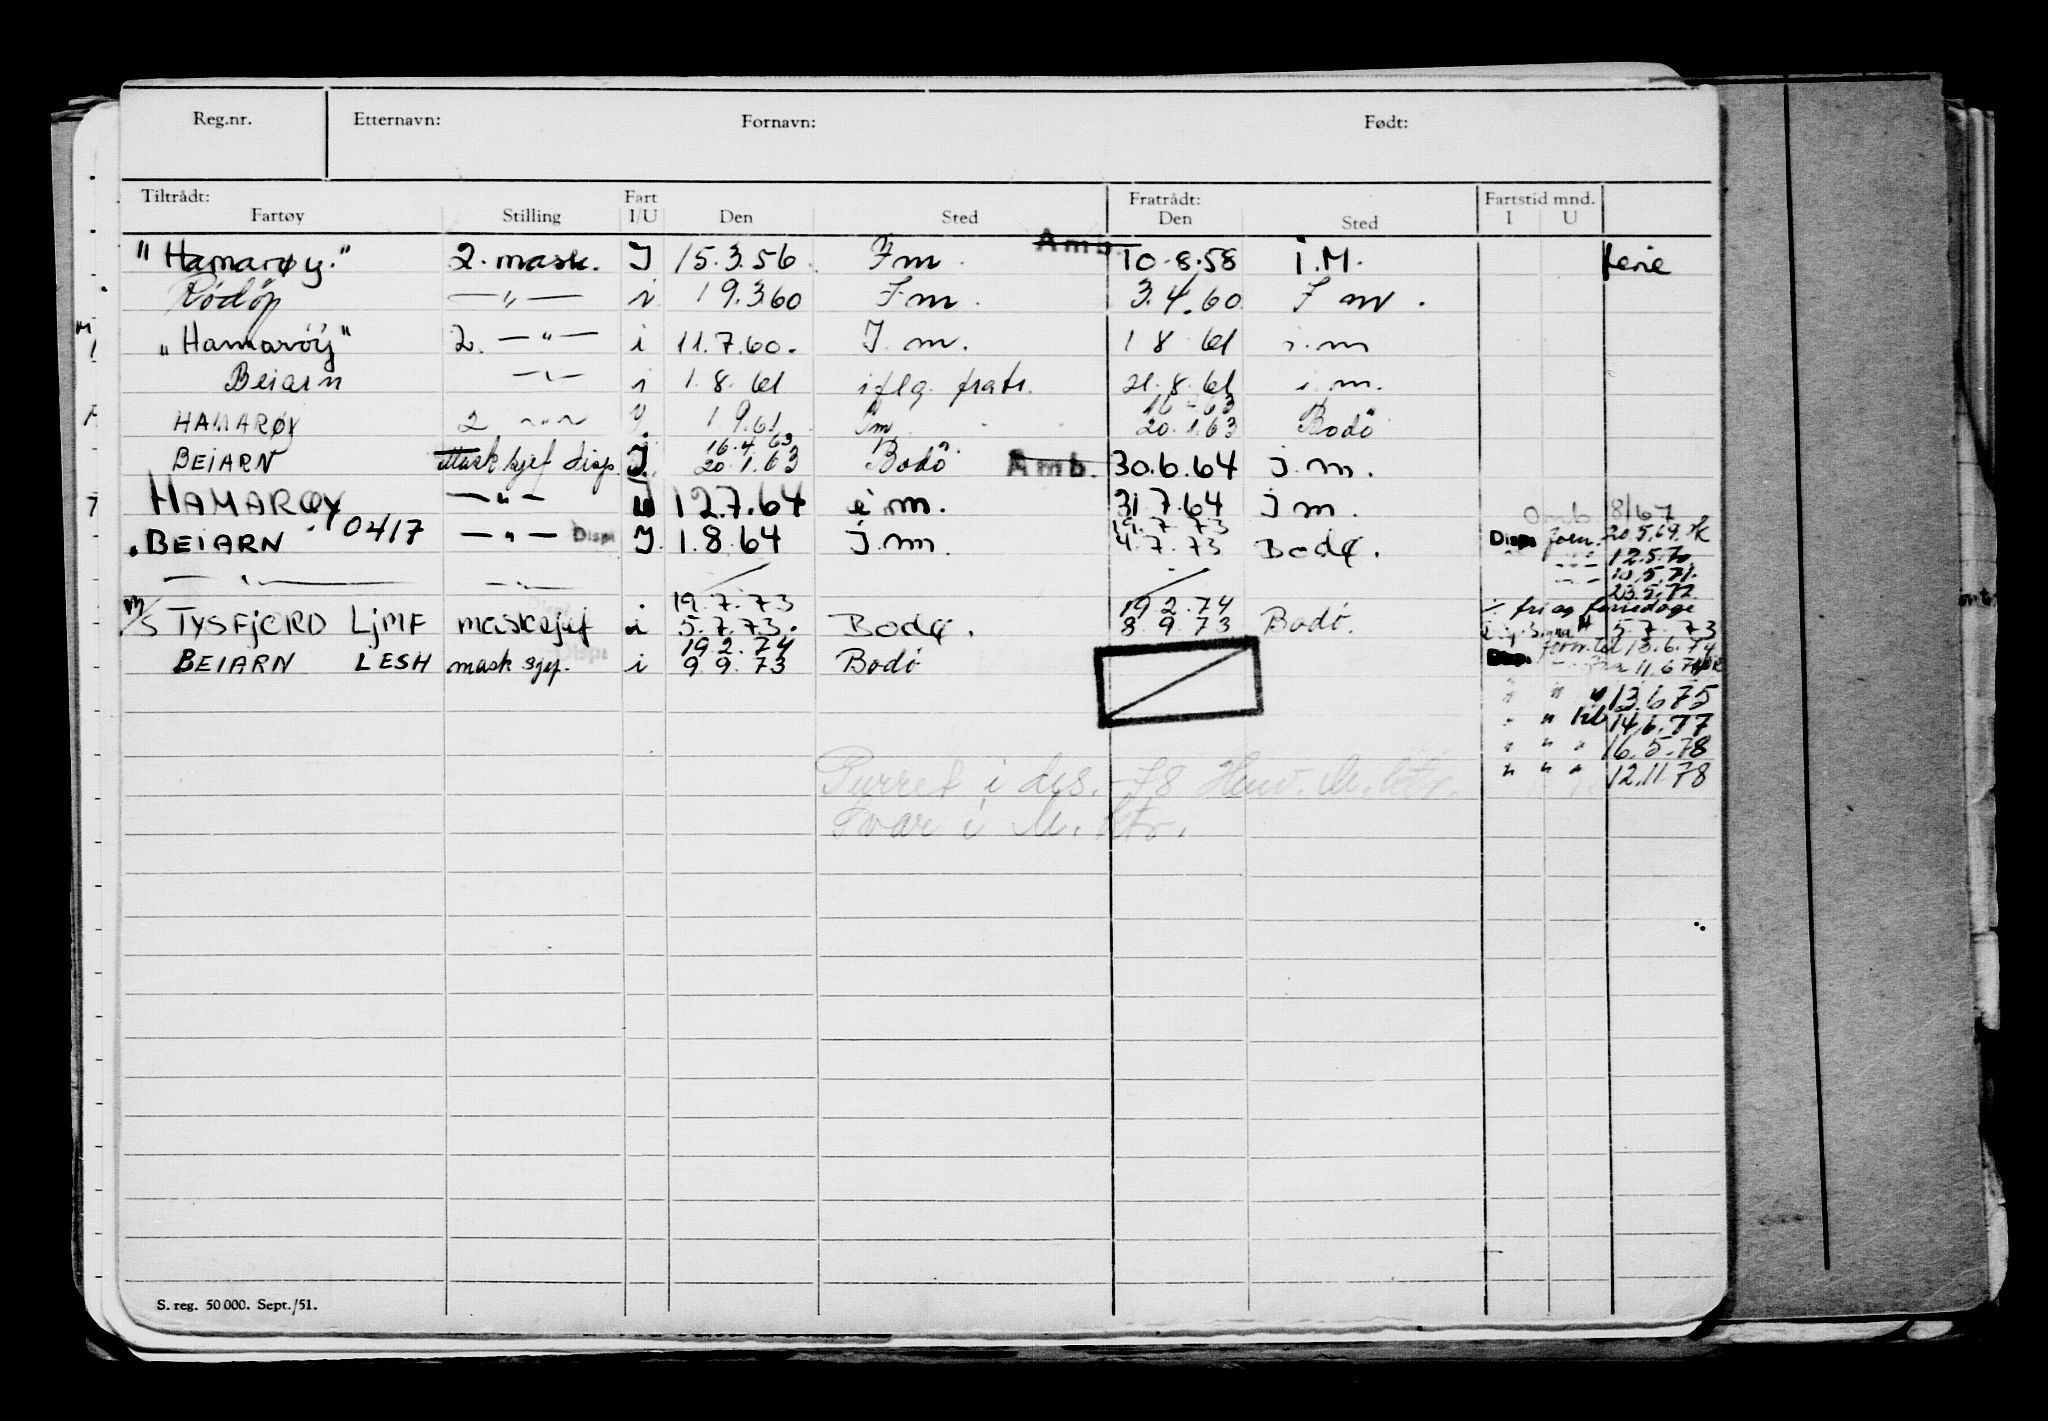 Reg.nr. Etternavn: Fornavn: Født:
Tiltrådt: Fart Fratrådt: Fartstid mnd.
Fartøy Stilling I/U Den Sted Den Sted I U
Amb.
"Hamarøy." 2. mask. I 15.3.56. I m. 10.8.58 i.M. ferie
Rödöy — " — i 19.3.60 I m. 3.4.60 I m.
"Hamaröy" 2. — " — i 11.7.60. I. m. 1 8 61 i.m
Beiarn — " — i 1.8.61 iflg. fratr. 21.8.61 i.m.
16 4 63
HAMARØY 2 — " — 1 9.61 Im 20.1.63 Bodö
16.4.63
BEIARN Mask sjef disp. I. 20.1.63 Bodö Amb. 30.6.64 i.m.
HAMARØY — " — 12.7.64 i m. 31 7.64 I m. Omb 8/67
19.7.73
. BEIARN . 0417 — " — Disp. I. 1.8.64 i.m. 4.7.73 Bodø. Disp. forn. 20.5.69.
" " 12.5.70
— " — — " — " " 10.5.71.
23.5.72
19.7.73 19 2.74 ./. fri og feriedage
M/S TYSFJORD LJMF masksjef i 5.7.73. Bodø. 8.9.73 Bodö. 5.7.73
19.2.74 forn. til 13.6.74
BEIARN LESH mask sjef. i 9.9.73 Bodö Disp. 11.6.74
" " " 13.6.75
" " 14.6.77
" " " 16.5.78
" " " 12.11.78
Purret i des. -78 Henv.
Svar i
S. reg. 50 000. Sept./51.